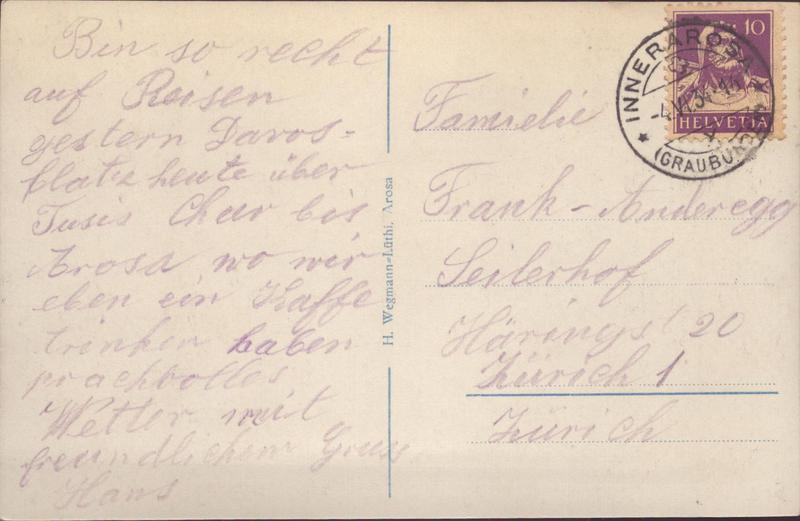 Bin so recht
auf Reisen
gestern Davos-
platz heute über
Tusis Chur bis
Arosa wo wir
eben ein Kaffe
trinken haben
prachtvolles
Wetter mit
freundlichem Gruss
Hans
H. Wegmann-Lüthi, Arosa
10
HELVETIA
INNERAROSA
(GRAUBÜNDEN)
Familie
Frank-Anderegg
Seilerhof
Härings' 20
Zürich 1
Zürich